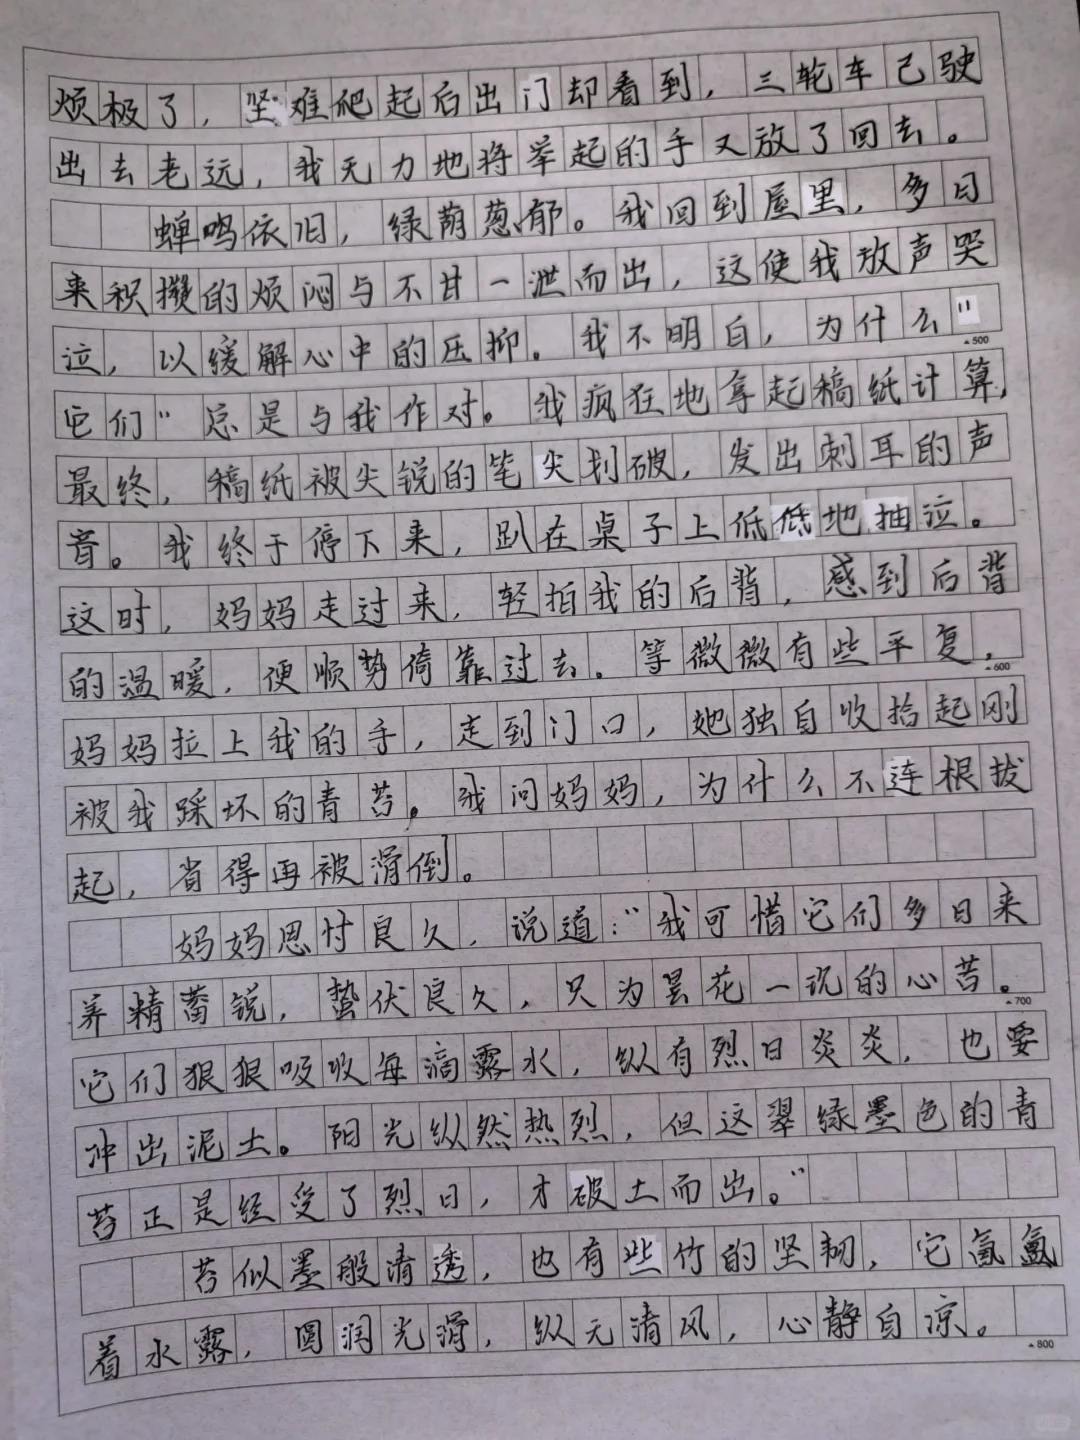 烦极了，坚难爬起后出门却看到，三轮车已驶
出去老远，我无力地将举起的手又放了回去。
蝉鸣依旧，绿荫葱郁。我回到屋里，多日
来积攒的烦闷与不甘一泄而出，这使我放声哭
泣，以缓解心中的压抑。我不明白，为什么"
它们"总是与我作对。我疯狂地拿起稿纸计算，
最终，稿纸被尖锐的笔尖划破，发出刺耳的声
音。我终于停下来，趴在桌子上低低地抽泣。
这时，妈妈走过来，轻拍我的后背，感到后背
的温暖，便顺势倚靠过去。等微微有些平复，
妈妈拉上我的手，走到门口，她独自收拾起刚
被我踩坏的青苔。我问妈妈，为什么不连根拔
起，省得再被滑倒。
妈妈思忖良久，说道："我可惜它们多日来
养精蓄锐，蛰伏良久，只为昙花一现的心苦。
它们狠狠吸收每滴露水，纵有烈日炎炎，也要
冲出泥土。阳光纵然热烈，但这翠绿墨色的青
苔正是经受了烈日，才破土而出。"
苔似墨般清透，也有些竹的坚韧，它氤氲
着水露，圆润光滑，纵无清风，心静自凉。
▲500
▲600
▲700
▲800